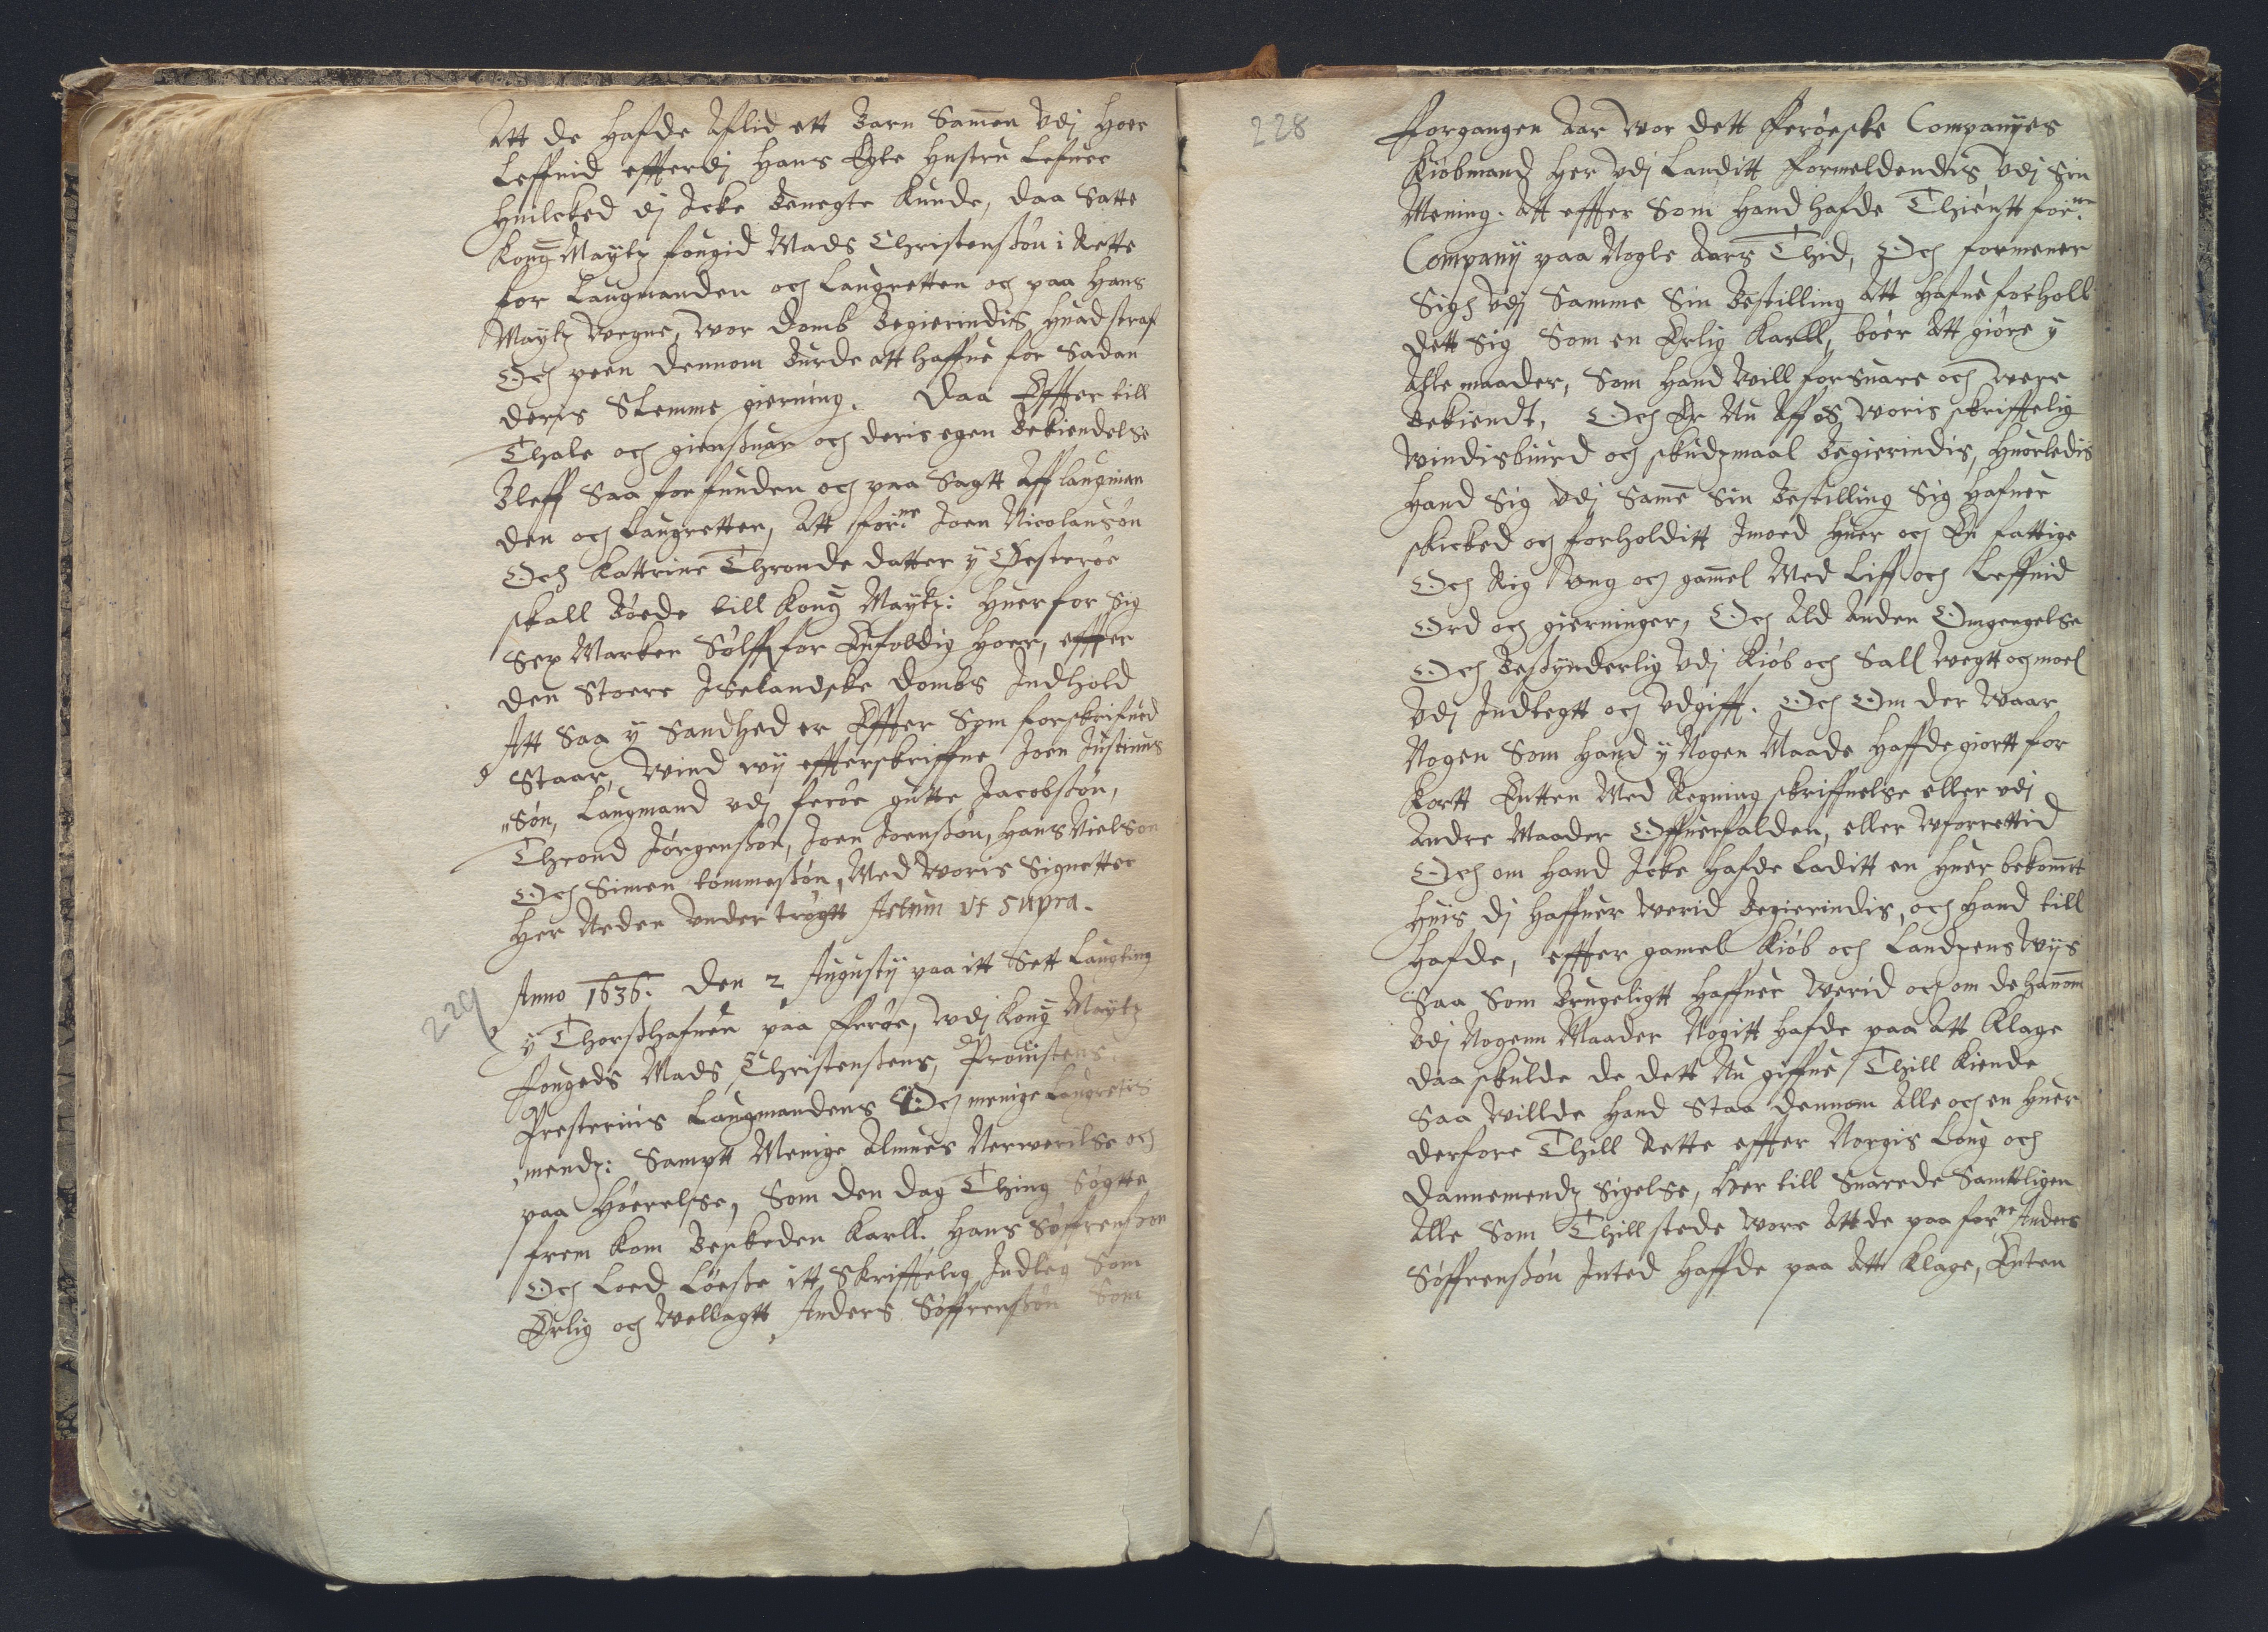 Att de hafde Aflid ett Barn Samen Vdj Hoer
Leffnid effterdj Hans Egte Hustru Lefuer
Huilcked dj Icke Benegte Kunde, daa Satte
Kong Maytz fougid Mads Christensøn i Rette
for Laugmanden och Laugretten och paa Hans
Maytz Wegne, Wor domb Begierindis, Huad straf
Och peen dennom Burde att haffue for Sadan
deris Slemme gierning. Daa Effter till
Thale och giensuar och deris egen Bekiendelse
Bleff Saa forfunden och paa Sagtt Aff laugman
den och Laugretten, Att for:ne Joen Nicolausøn
Och Kattrine Thronde datter y Øesterøe
skall Bøede till Kong Maytz: Huer for Sig
Sex Marker Sølff for Enfoldig Hoer, effter
den Stoere Iselandske dombs Indhold
Att Saa y Sandhed er Effter Som forskrifued
Staar, Wind wy effterskriffne Joen Justinus
"Søn, Laugmand vdj ferøe gutte Jacobsøn,
Thrond Jørgensøn, Joen Joensøn, Hans Nielson
Och Simen tommesøn, Med Woris Signetter
Her Neden Vnder trøgtt Actum Vt supra.
229
Anno 1636. den 2 Augusty paa itt Sett Laugting
y Thorshafnen paa Ferøe, Vdj Kong Maytz
fougeds Mads Christensens, Prouistens
Presternis Laugmandens Och menige Laugrettis
mendz: Samptt Menige Almues Nerwerilse och
paa Høerelse, Som den dag Thing Søgtte
frem Kom Beskeden Karll. Hans Søffrensøn
Och Loed Løesse itt Skriffelig Indleg Som
Erlig och Wellagtt Anders Søffrensøn Som
228
Forgangen Aar Wor dett Ferøeske Companyes
Kiøbmand Her Vdj Landitt formeldendis Vdj Sin
Mening. Att effter Som Hand hafde Thientt for:ne
Company paa Nogle Aars Thid, Och formener
Sigh Vdj Samme Sin Bestilling Att Hafue forholl
dett Sig Som en Erlig Karll, bøer Att giøre y
Alle maader, Som Hand Will forsuare och were
Bekiendt, Och Er Nu Aff os Woris skriffelig
Windisbiurd och skudzmaal Begierindis, Huorledis
Hand Sig Vdj Same Sin Bestilling Sig Hafuer
skicked och forholditt Imoed Huer och En fattige
Och Rig Vng och gamel Med Liff och Leffnid
Ord och gierninger, Och Ald Anden Omgengelse
Och Besynderlig Vdj Kiøb och Sall Wegtt och moel
Vdj Indlegtt och Vdgifft. Och Om der Waar
Nogen Som Hand y Nogen Maade Haffde giortt for
Kortt Entten Med Regning skriffuelse eller vdj
Andre Maader Offuerfalden, eller Wforrettid
Och om Hand Icke Hafde Laditt en Huer bekomtt
Huis dj Haffuer Werid Begierindis, och Hand till
Hafde, effter gamel Kiøb och Landzens Wys
Saa Som Brugeligtt Haffuer Werid och om de Hanom
Vdj Nogenn Maader Nogitt Hafde paa Att Klage
daa skulde de dett Nu giffue Thill Kiende
Saa Willde Hand Staa dennom Alle och en Huer
derfore Thill Rette effter Norgis Loug och
Dannemendz Sigelse, Her till Suarede Samtligen
Alle Som Thill stede Wore Att de paa for:ne Anders
Søffrensøn Inted Haffde paa Att Klage, Enten